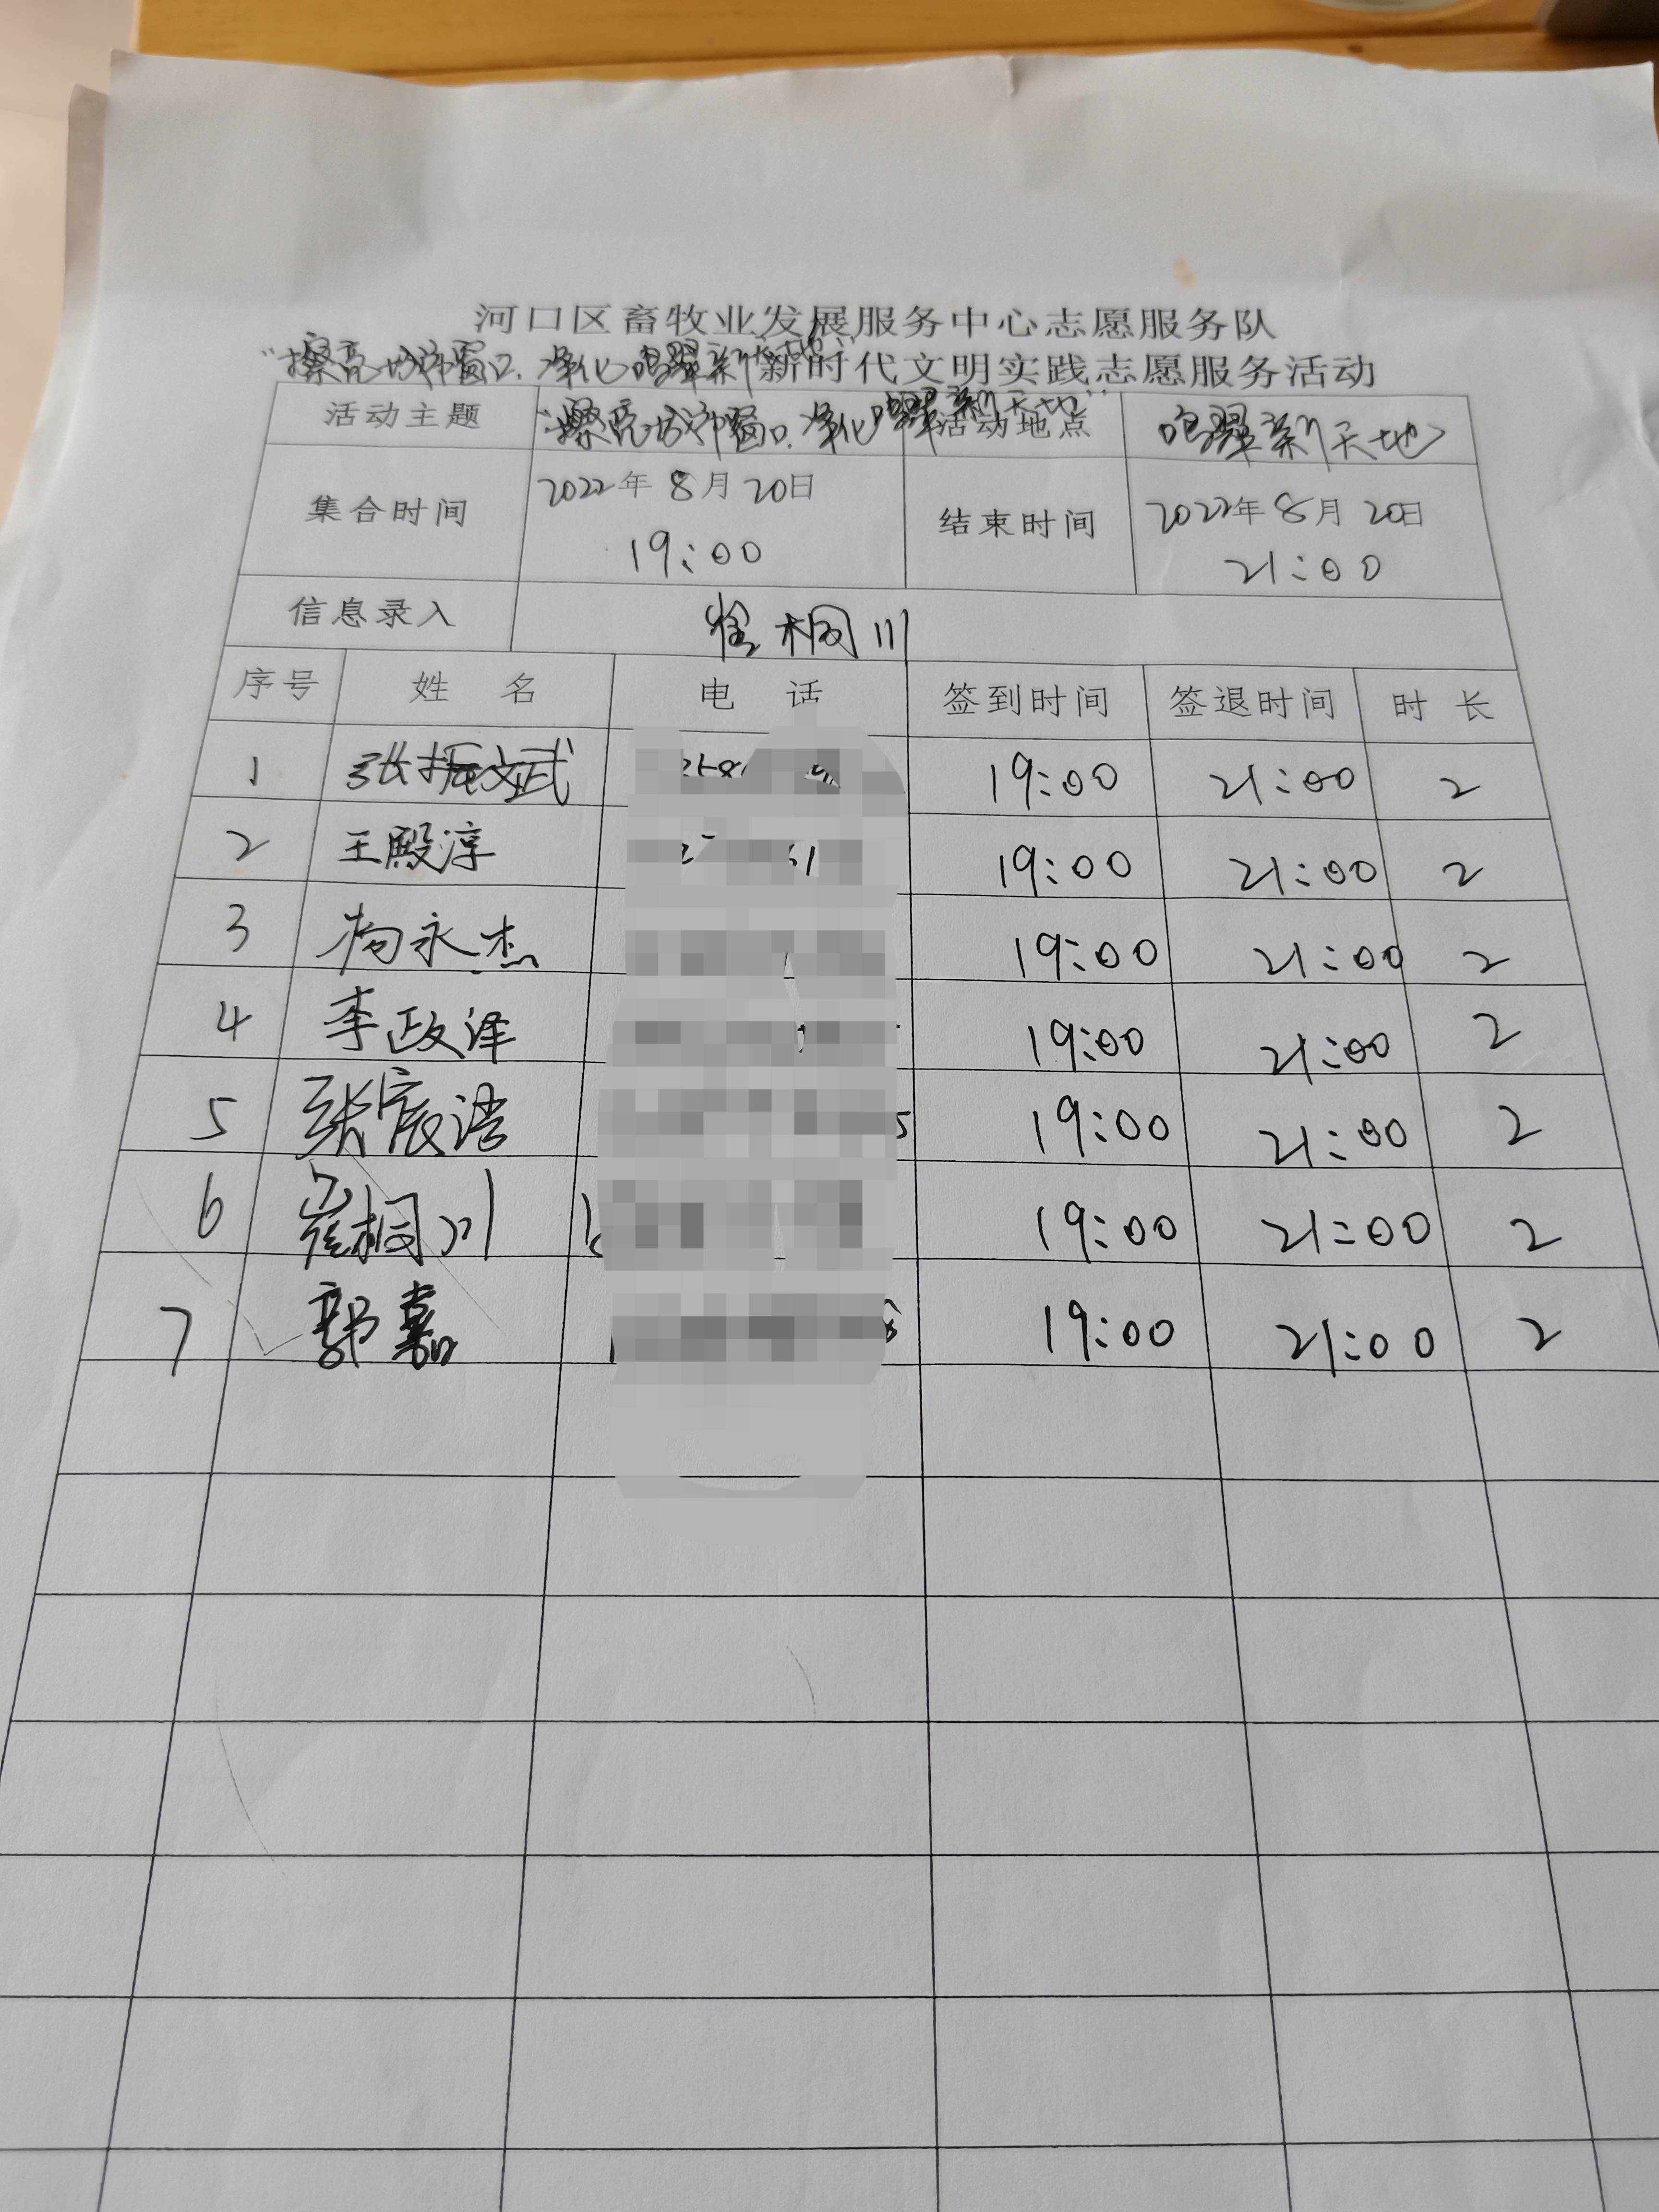 河口区畜牧业发展服务中心志愿服务队
“擦亮城市窗口.净化鸣翠新天地”新时代文明实践志愿服务活动
活动主题 “擦亮城市窗口.净化鸣翠新天地” 活动地点 鸣翠新天地
集合时间 2022年8月20日 19:00 结束时间 2022年8月20日 21:00
信息录入 崔桐川
序号 姓 名 电 话 签到时间 签退时间 时 长
1 张振斌 19:00 21:00 2
2 王殿淳 19:00 21:00 2
3 杨永杰 19:00 21:00 2
4 李政泽 19:00 21:00 2
5 张宸浩 19:00 21:00 2
6 崔桐川 19:00 21:00 2
7 郭嘉 19:00 21:00 2